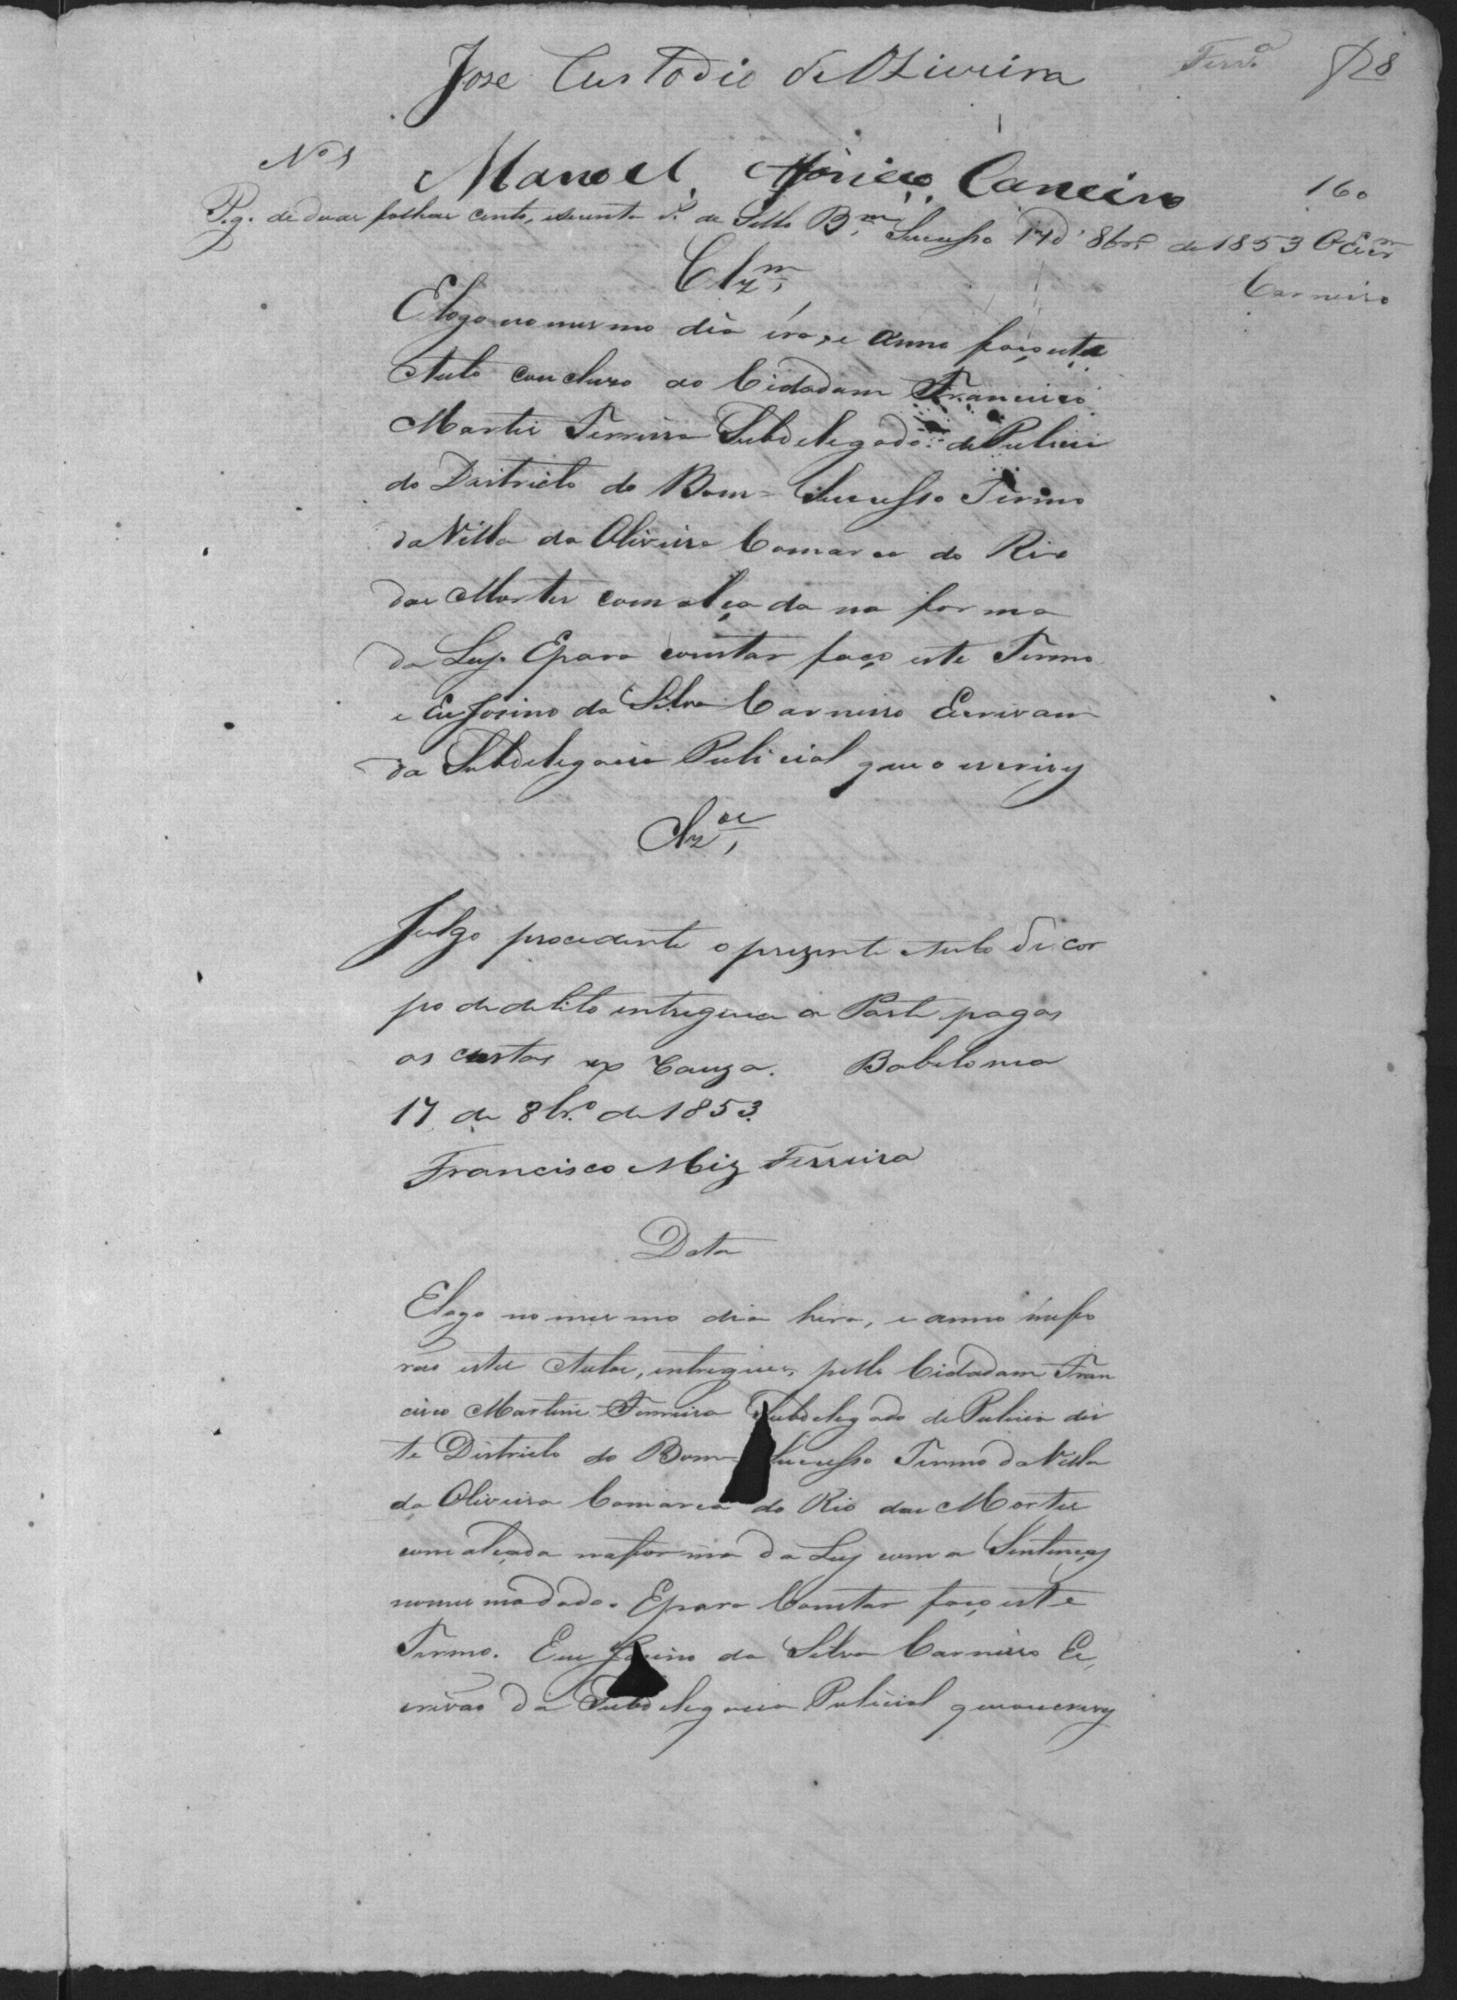 Jose Custodio de OLiveira
Ferr.ª 8
Nº 1 Manoel Caneiro 160
Pg. de duas folhas cento, secenta rs. de Sello Bm Sucesso 17 d' 8brº de 1853 O Escrm
Carneiro
Clzm
E logo no mesmo dia éra, e anno faço este
Auto concluzo ao Cidadam Francisco
Martis Ferreira Subdelegado de Pulicia
do Districto do Bom=Sucesso Termo
da Villa da Oliveira Comarca do Rio
das Mortes com alçada na forma
da Ley. E para constar faço este Termo
e Eu Josino da Silva Carneiro Escrivam
da Subdelegacia Pulicial que o escrivy
Clzos
Julgo procedente o prezente Auto de cor
po de delito entregue a Parte pagas
as custas ex Cauza. Babelonia
17 de 8brº de 1853.
Francisco Miz Ferreira
Data
E logo no mesmo dia hera, e anno
rão estes Autos, entregues, pello Cidadam Fran
cisco Martins Ferreira Subdelegado de Pulicia des
te Districto do Bom Sucesso Termo da Villa
da Oliveira Comarca do Rio das Mortes
com alçada na forma da Ley com a Sentença
E para Constar faço este
Termo. Eu Josino da Silva Carneiro Es,
crivão da Subdelegacia Pulicial que o escrivy